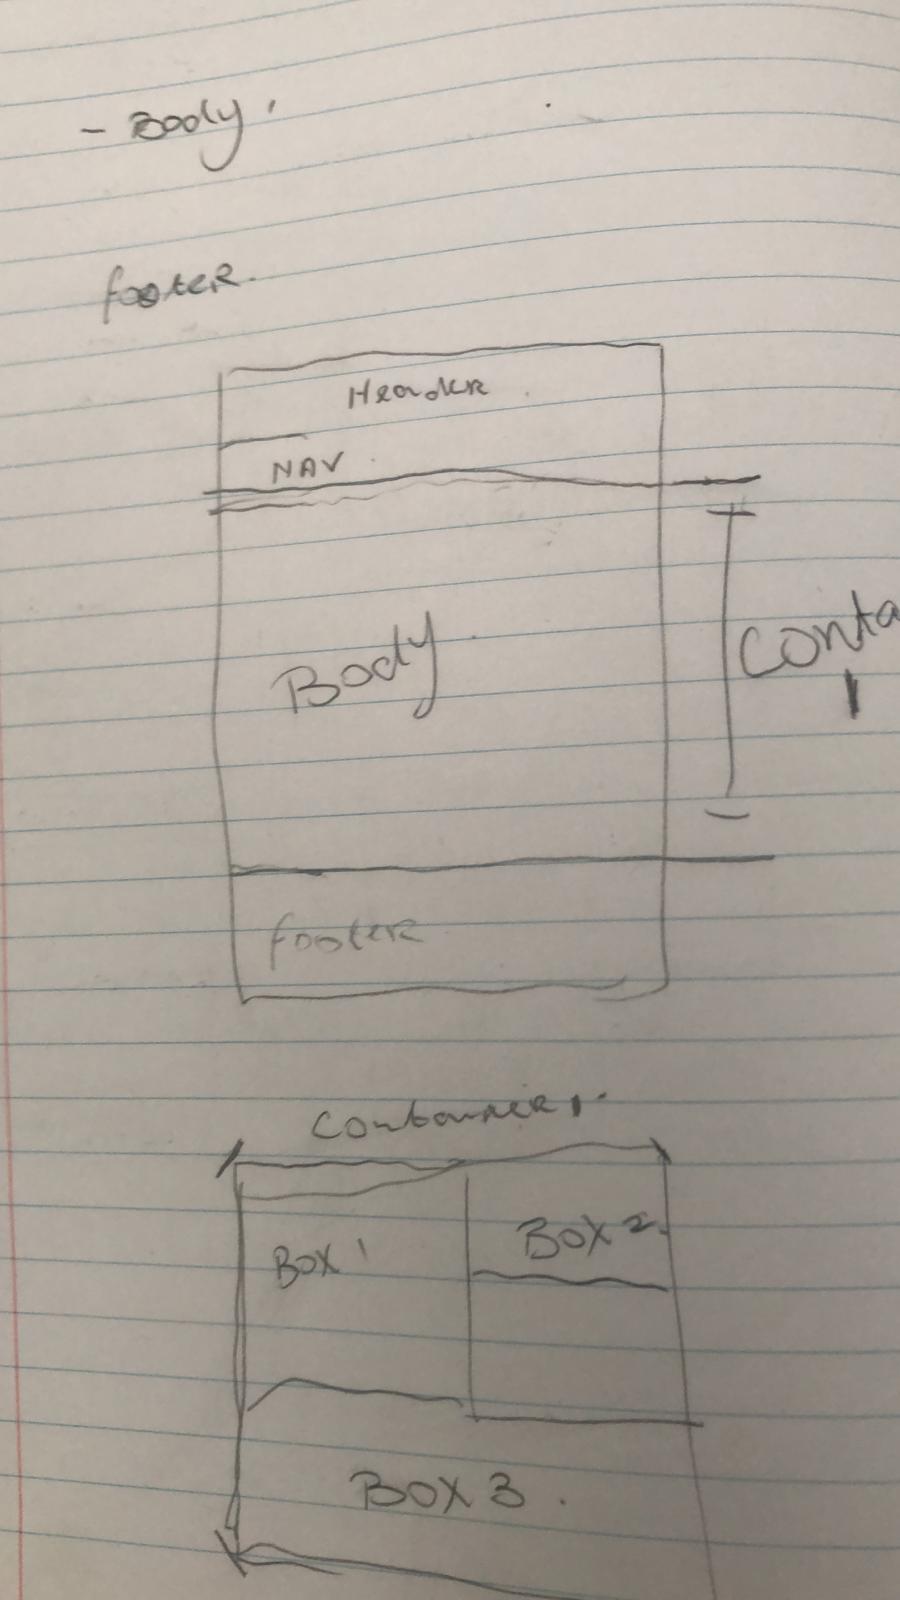 - Body.
footer.
Header
NAV
Body
Conta
1
footer
Container 1.
Box 1
Box 2
Box 3.